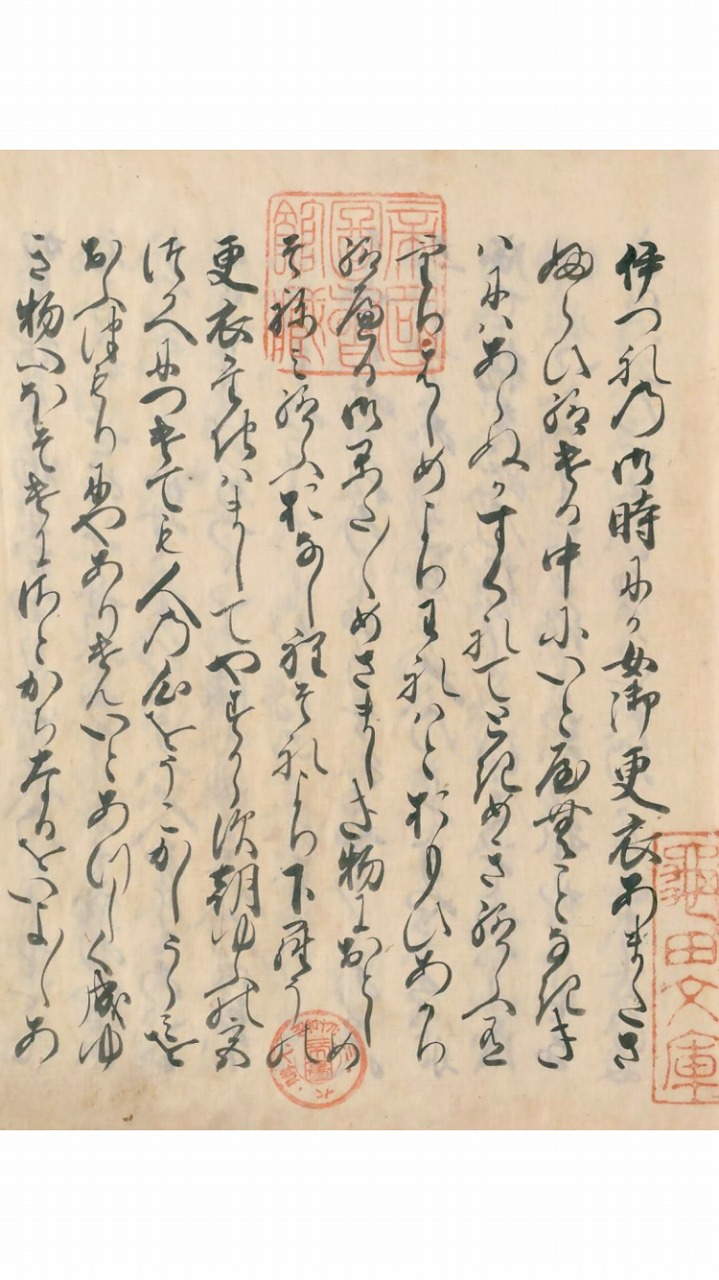 伊つれの御時にか女御更衣あまたさ
ふらひ給ける中にいとやむことなきき
はにはあらぬかすくれてときめき給ふ有
けりはしめよりわれはとおもひあかり
給へる御かた〱めさましき物におとしめ
そねみ給ふおなし程それより下らうの
更衣たちはましてやすからす朝ゆふの宮
つかへにつけても人の心をうこかしうらみを
おふつもりにやありけんいとあつしく成ゆ
き物心ほそけにさとかちなるをいよ〱あ
帝国図書館蔵
龜田文庫